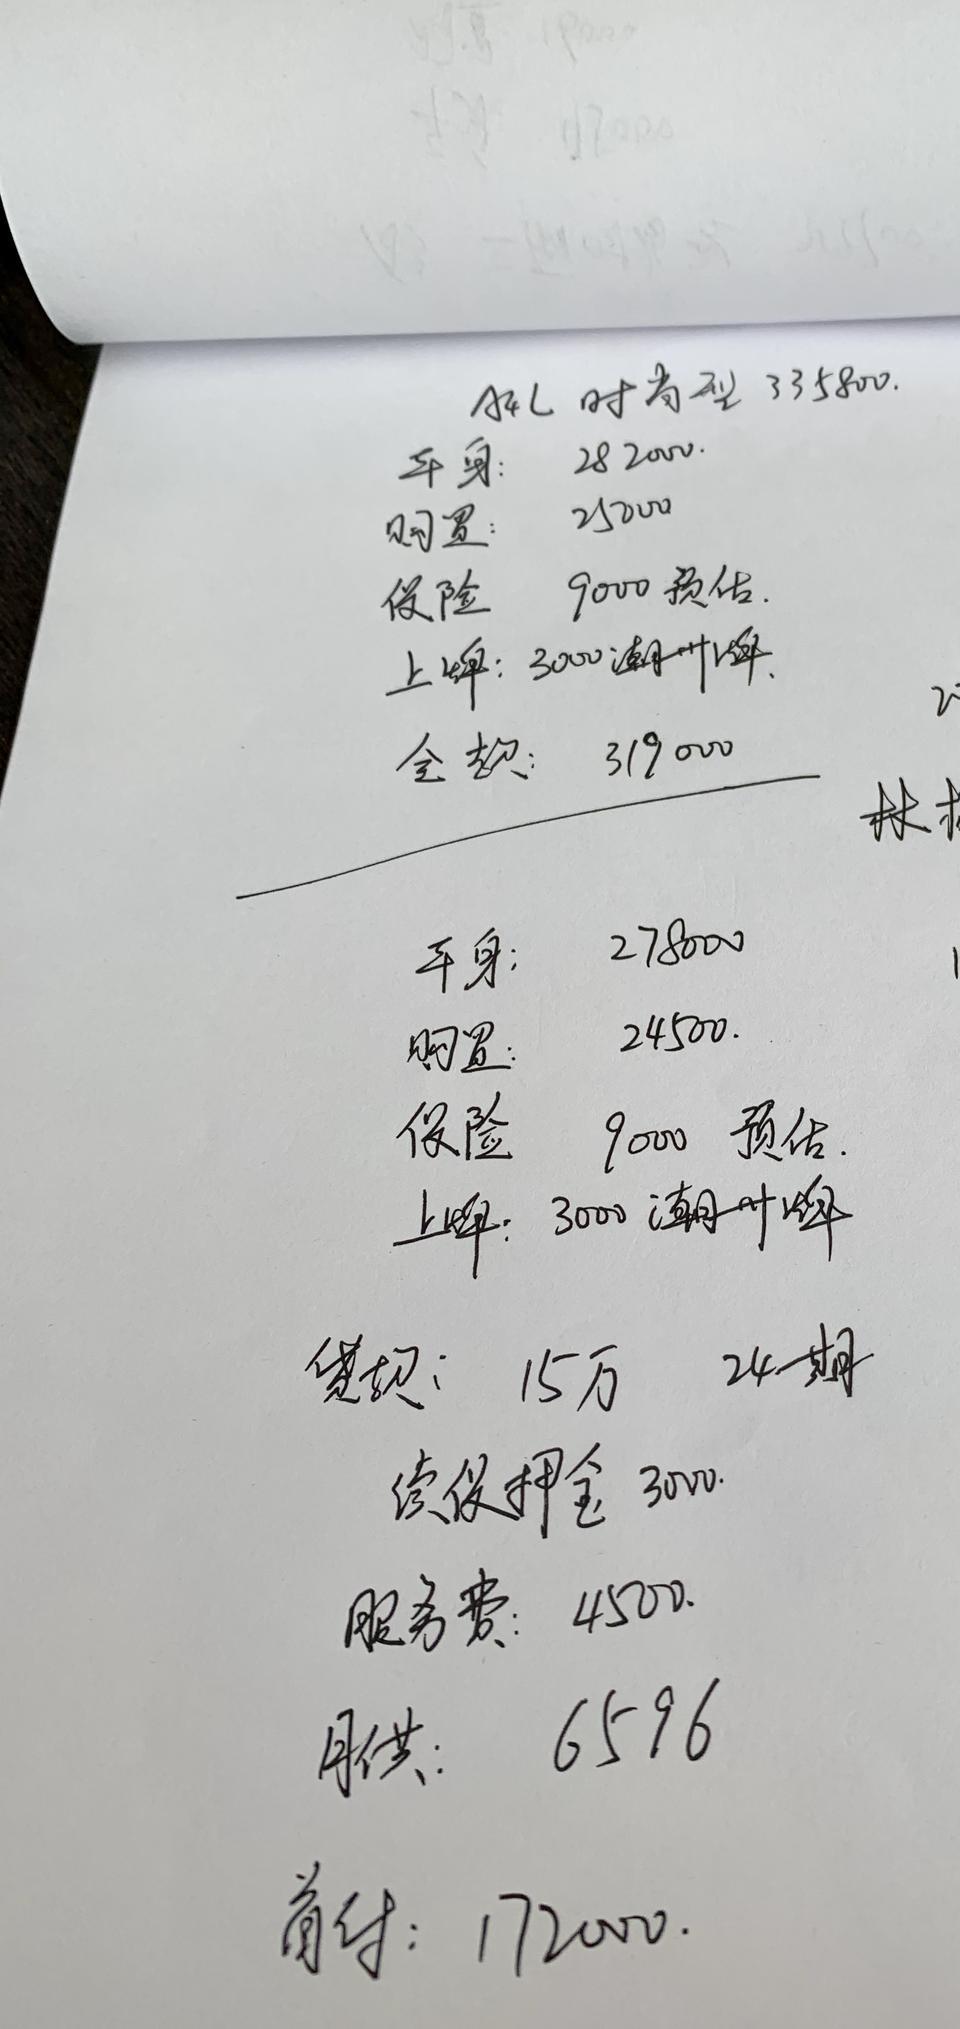 A4L 时尚型 335800.
车身: 282000.
购置: 25000
保险 9000 预估.
上牌: 3000 潮州牌.
全款: 319000
林
车身: 278000
购置: 24500.
保险 9000 预估.
上牌: 3000 潮州牌
贷款: 15万 24期
续保押金 3000.
服务费: 4500.
月供: 6596
首付: 172000.